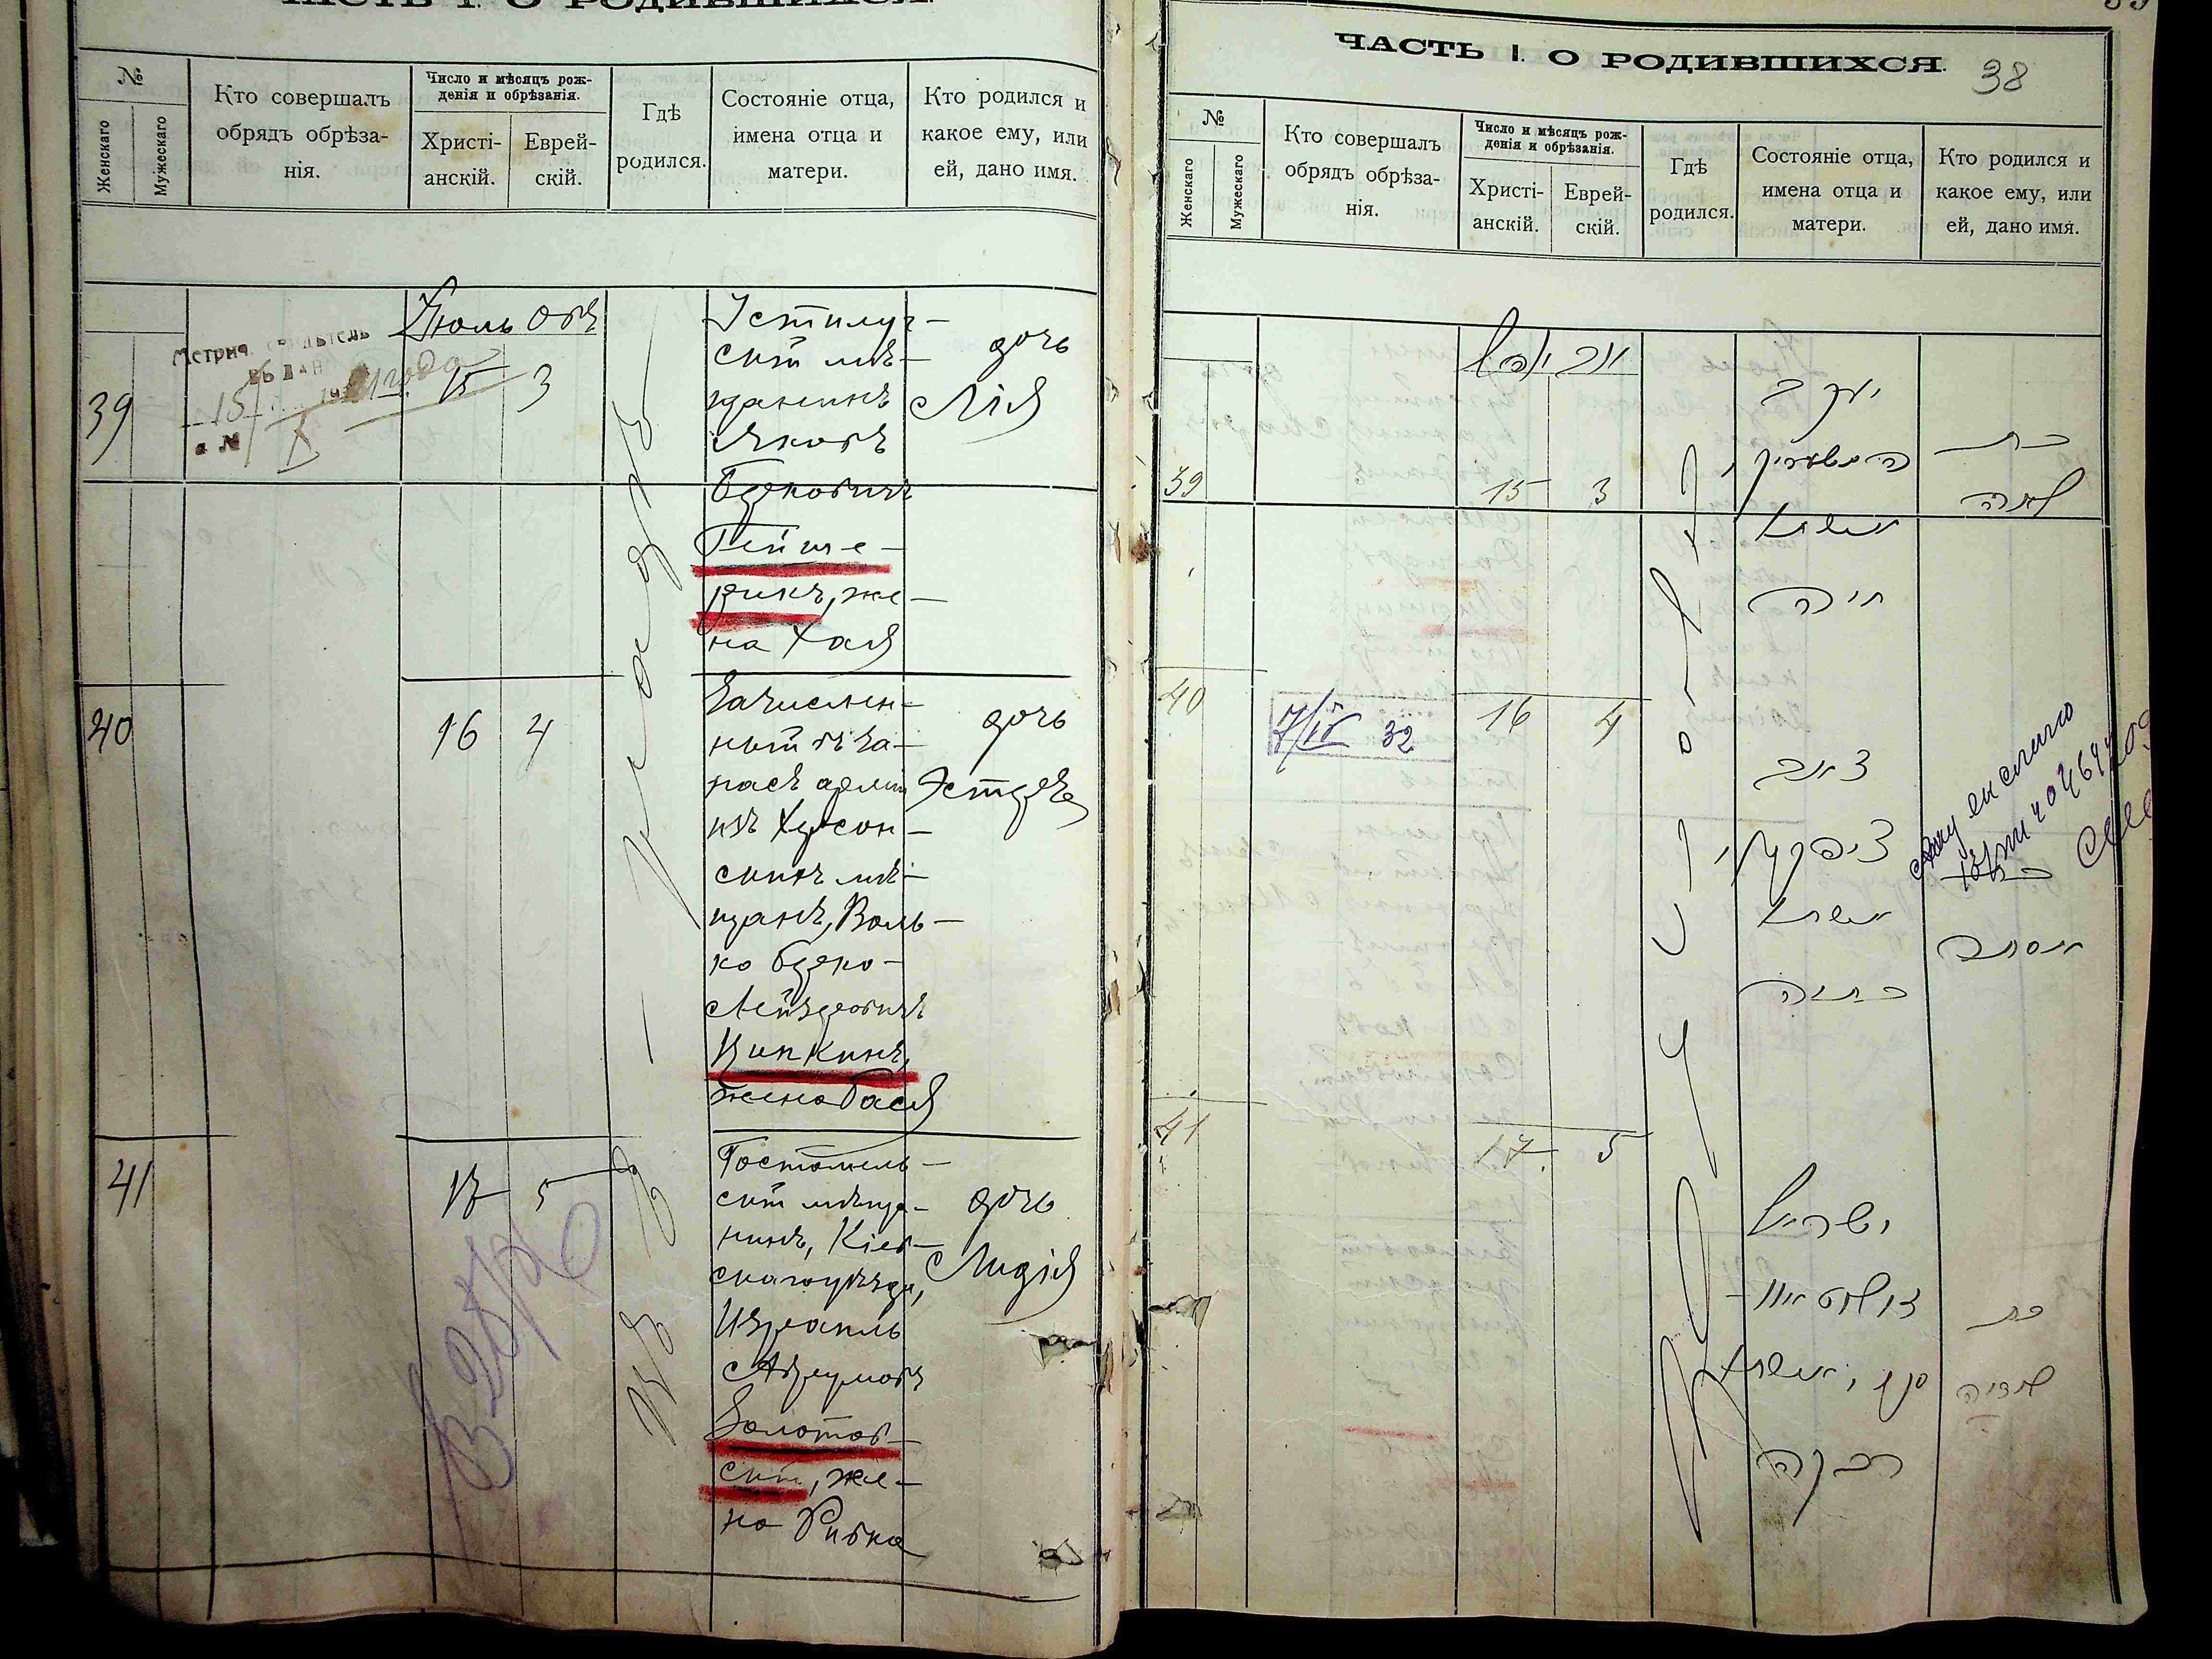 ЧАСТЬ I. О РОДИВШИХСЯ.
№
Женскаго
Мужескаго
Кто совершалъ
обрядъ обрѣза-
нія.
Число и мѣсяцъ рож-
денія и обрѣзанія.
Христі-
анскій.
Еврей-
скій.
Гдѣ
родился.
Состояніе отца,
имена отца и
матери.
Кто родился и
какое ему, или
ей, дано имя.
Іюль Овъ
39
15
3
Устилуг-
скій мѣ-
щанинъ
Яковъ
Берковичъ
Гейше-
рикъ, же-
на Хая
дочь
Лія
40
16
4
Зачислен-
ный въ за-
пасъ арміи
изъ Херсон-
скихъ мѣ-
щанъ, Воль-
ко Берко-
Лейзеровичъ
Ципкинъ,
жена Бася
дочь
41
17
5
Гостомель-
скій мѣща-
нинъ, Кіев-
скаго уѣзда,
Израиль
Аврумовъ
Золотов-
скій, же-
на Ривка
дочь
Лидія
ЧАСТЬ I. О РОДИВШИХСЯ.
38
№
Женскаго
Мужескаго
Кто совершалъ
обрядъ обрѣза-
нія.
Число и мѣсяцъ рож-
денія и обрѣзанія.
Христі-
анскій.
Еврей-
скій.
Гдѣ
родился.
Состояніе отца,
имена отца и
матери.
Кто родился и
какое ему, или
ей, дано имя.
39
15
3
יעקב
אשתו
חיה
בת
לאה
40
32
16
4
זאב
ציפקין
אשתו
בתיה
בת
אסתר
41
17
5
ישראל
זאלאטאוו-
סקי, אשתו
רבקה
בת
לידיה